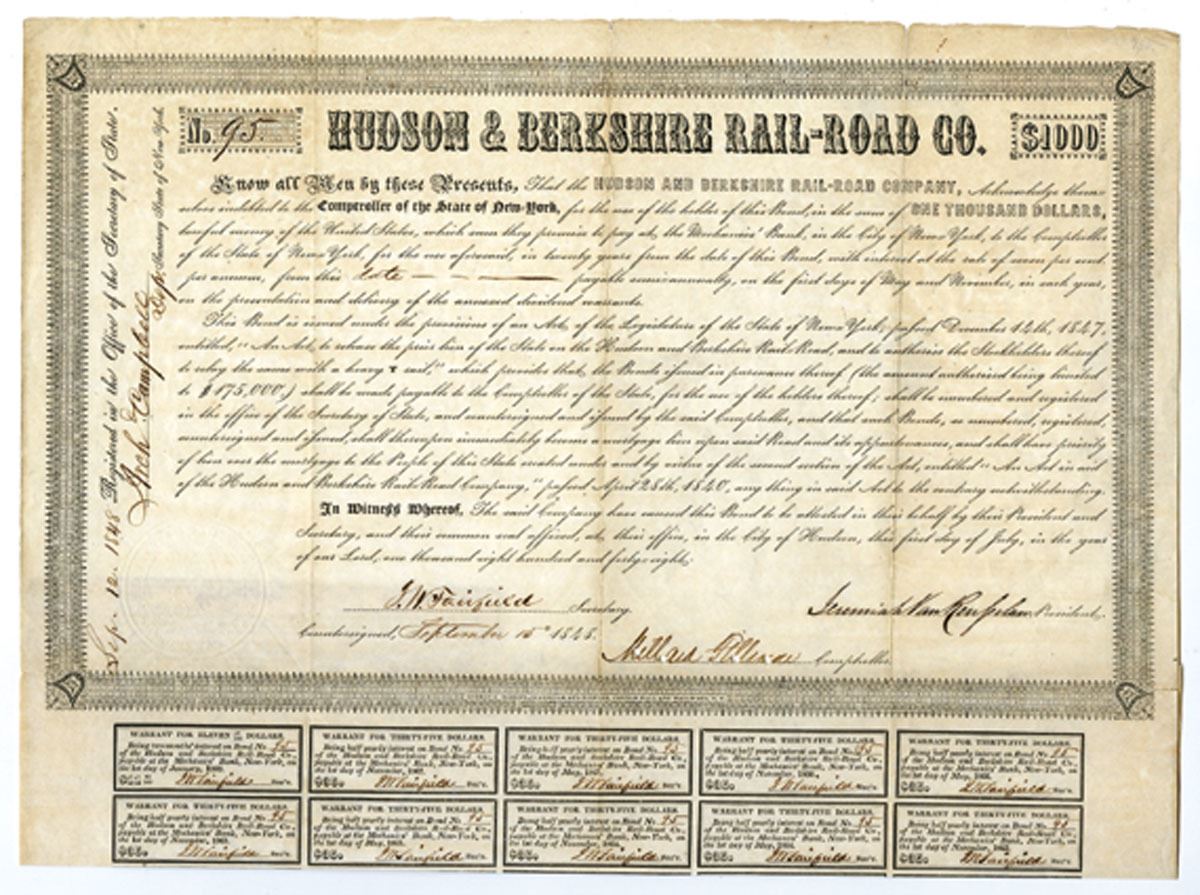 No. 95
HUDSON & BERKSHIRE RAIL-ROAD CO.
$1000
Know all Men by these Presents, That the HUDSON AND BERKSHIRE RAIL-ROAD COMPANY, Acknowledge them-
selves indebted to the Comptroller of the State of New-York, for the use of the holder of this Bond, in the sum of ONE THOUSAND DOLLARS,
lawful money of the United States, which sum they promise to pay at the Mechanics' Bank, in the City of New-York, to the Comptroller
of the State of New-York, for the use aforesaid, in twenty years from the date of this Bond, with interest at the rate of seven per cent.
per annum, from this date payable semi-annually, on the first days of May and November, in each year,
on the presentation and delivery of the annexed dividend warrants.
This Bond is issued under the provisions of an Act of the Legislature of the State of New-York, passed December 14th, 1847,
entitled, "An Act, to release the prior lien of the State on the Hudson and Berkshire Rail-Road, and to authorize the Stockholders thereof
to relay the same with a heavy T rail," which provides that the Bonds issued in pursuance thereof (the amount authorized being limited
to $175,000,) shall be made payable to the Comptroller of the State, for the use of the holders thereof; shall be numbered and registered
in the office of the Secretary of State, and countersigned and issued by the said Comptroller, and that such Bonds, so numbered, registered,
countersigned and issued, shall thereupon immediately become a mortgage lien upon said Road and its appurtenances, and shall have priority
of lien over the mortgage to the People of this State created under and by virtue of the second section of the Act, entitled "An Act in aid
of the Hudson and Berkshire Rail-Road Company," passed April 28th, 1840, any thing in said Act to the contrary notwithstanding.
In Witness Whereof, The said Company have caused this Bond to be attested in their behalf by their President and
Secretary, and their common seal affixed, at their office, in the City of Hudson, this first day of July, in the year
of our Lord, one thousand eight hundred and forty-eight.
J.W. Fairfield Secretary.
Jeremiah Van Rensselaer President.
Countersigned, September 15th 1848.
Millard Fillmore Comptroller.
Sep. 12. 1848 Registered in the Office of the Secretary of State.
Arch Campbell
Dep. Secretary State of New York.
WARRANT FOR ELEVEN DOLLARS.
on Bond No. 95
of the Hudson and Berkshire Rail-Road Co.
payable at the Mechanics' Bank, New-York, on
the 1st day of January,
JW Fairfield Sec'y.
WARRANT FOR THIRTY-FIVE DOLLARS.
Being half yearly interest on Bond No. 95
of the Hudson and Berkshire Rail-Road Co.
payable at the Mechanics' Bank, New-York, on
the 1st day of November,
$35. JW Fairfield Sec'y.
WARRANT FOR THIRTY-FIVE DOLLARS.
Being half yearly interest on Bond No. 95
of the Hudson and Berkshire Rail-Road Co.
payable at the Mechanics' Bank, New-York, on
the 1st day of May,
$35. JW Fairfield Sec'y.
WARRANT FOR THIRTY-FIVE DOLLARS.
Being half yearly interest on Bond No. 95
of the Hudson and Berkshire Rail-Road Co.
payable at the Mechanics' Bank, New-York, on
the 1st day of November,
$35. JW Fairfield Sec'y.
WARRANT FOR THIRTY-FIVE DOLLARS.
Being half yearly interest on Bond No. 95
of the Hudson and Berkshire Rail-Road Co.
payable at the Mechanics' Bank, New-York, on
the 1st day of May,
$35. JW Fairfield Sec'y.
WARRANT FOR THIRTY-FIVE DOLLARS.
Being half yearly interest on Bond No. 95
of the Hudson and Berkshire Rail-Road Co.
payable at the Mechanics' Bank, New-York, on
the 1st day of
$35. JW Fairfield Sec'y.
WARRANT FOR THIRTY-FIVE DOLLARS.
Being half yearly interest on Bond No. 95
of the Hudson and Berkshire Rail-Road Co.
payable at the Mechanics' Bank, New-York, on
the 1st day of
$35. JW Fairfield Sec'y.
WARRANT FOR THIRTY-FIVE DOLLARS.
Being half yearly interest on Bond No. 95
of the Hudson and Berkshire Rail-Road Co.
payable at the Mechanics' Bank, New-York, on
the 1st day of November,
$35. JW Fairfield Sec'y.
WARRANT FOR THIRTY-FIVE DOLLARS.
Being half yearly interest on Bond No. 95
of the Hudson and Berkshire Rail-Road Co.
payable at the Mechanics' Bank, New-York, on
the 1st day of May,
$35. JW Fairfield Sec'y.
WARRANT FOR THIRTY-FIVE DOLLARS.
Being half yearly interest on Bond No. 95
of the Hudson and Berkshire Rail-Road Co.
payable at the Mechanics' Bank, New-York, on
the 1st day of November,
$35. JW Fairfield Sec'y.